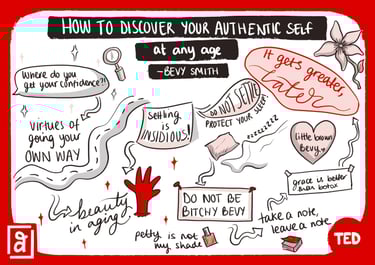 HOW TO DISCOVER YOUR AUTHENTIC SELF
at any age
-BEVY SMITH
Where do you
get your confidence?!
It gets greater,
Later
DO NOT SETTLE
PROTECT YOUR SLEEP!
settling is
INSIDIOUS!
zzzzzzzz
virtues of
going your
OWN WAY
little brown
Bevy
grace is better
than botox
beauty
in aging
DO NOT BE
BITCHY BEVY
take a note,
leave a note
petty is not
my shade
a
TED